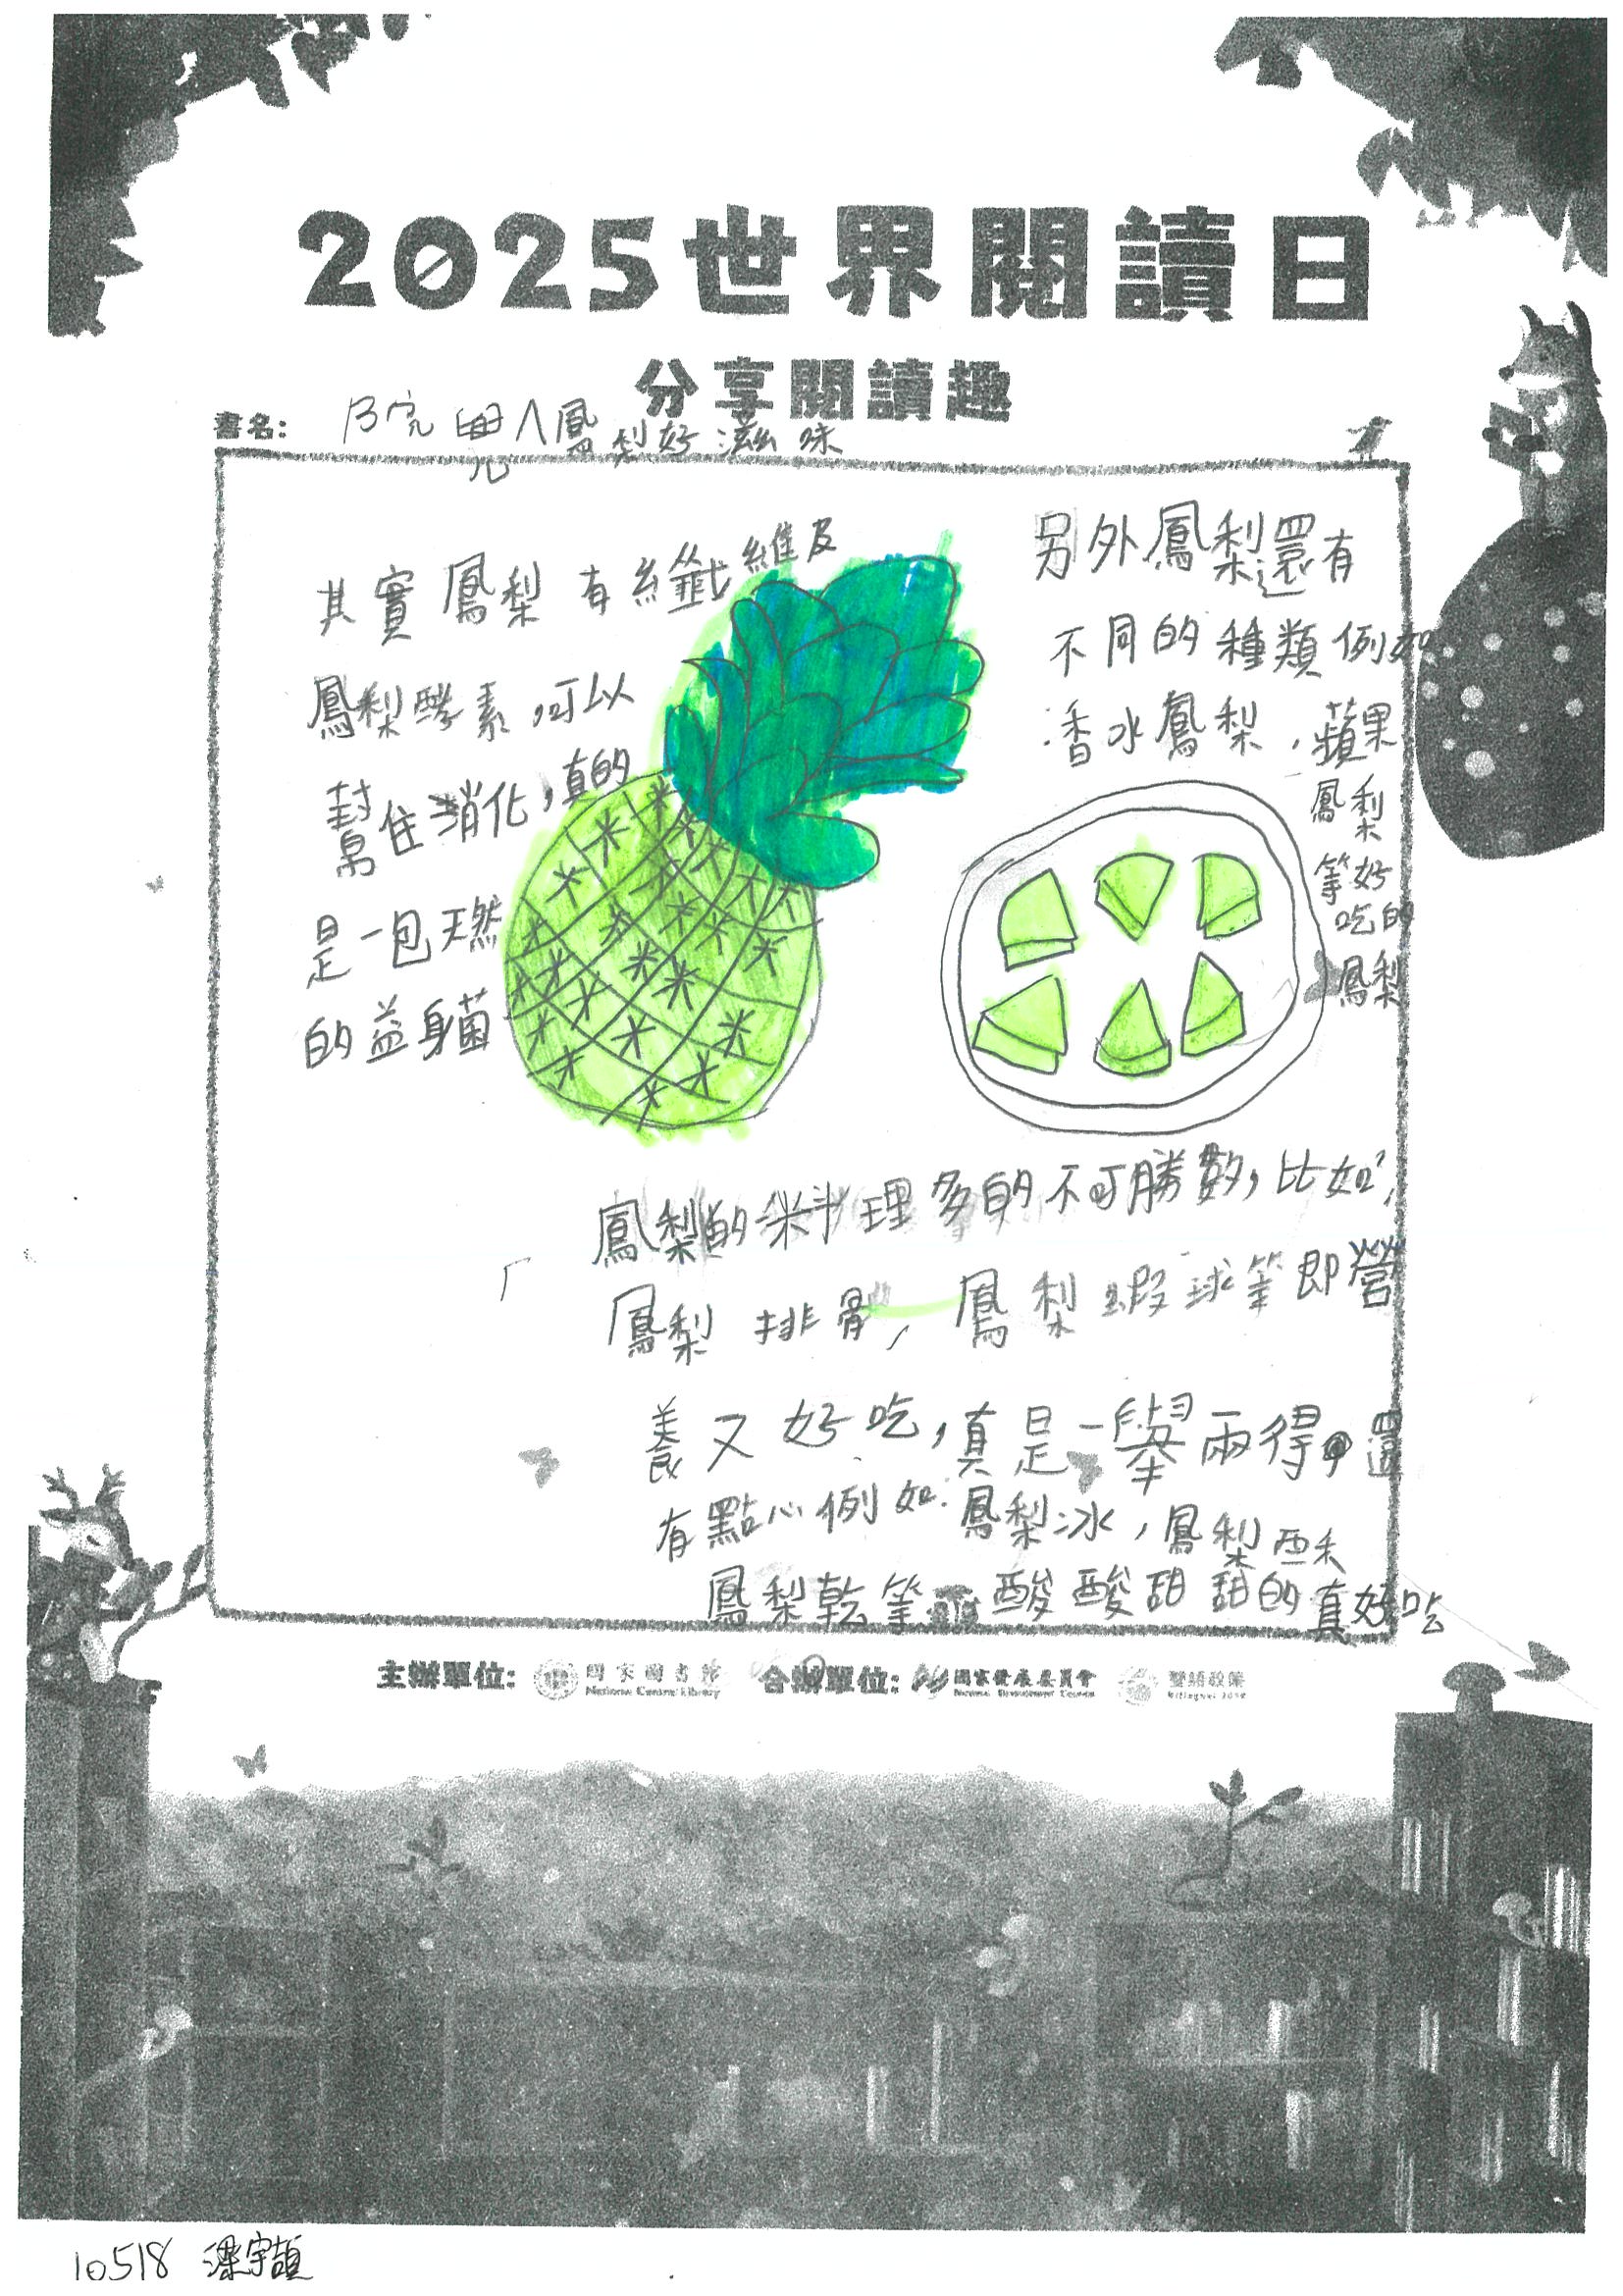 2025世界閱讀日
分享閱讀趣
書名:
鳳梨好滋味
其實鳳梨有纖維及
鳳梨酵素可以
幫住消化,真的
是一包天然
的益身菌
另外鳳梨還有
不同的種類例如
:香水鳳梨,蘋果
鳳梨
等好
吃的
鳳梨
鳳梨的料理多的不可勝數,比如,
鳳梨排骨,鳳梨蝦球等即營
養又好吃,真是一舉兩得。還
有點心例如:鳳梨冰,鳳梨酥
鳳梨乾等 酸酸甜甜的真好吃
主辦單位: 國家圖書館 合辦單位: 國家發展委員會 雙語政策
National Central Library National Development Council Bilingual 2030
10518 梁宇頡